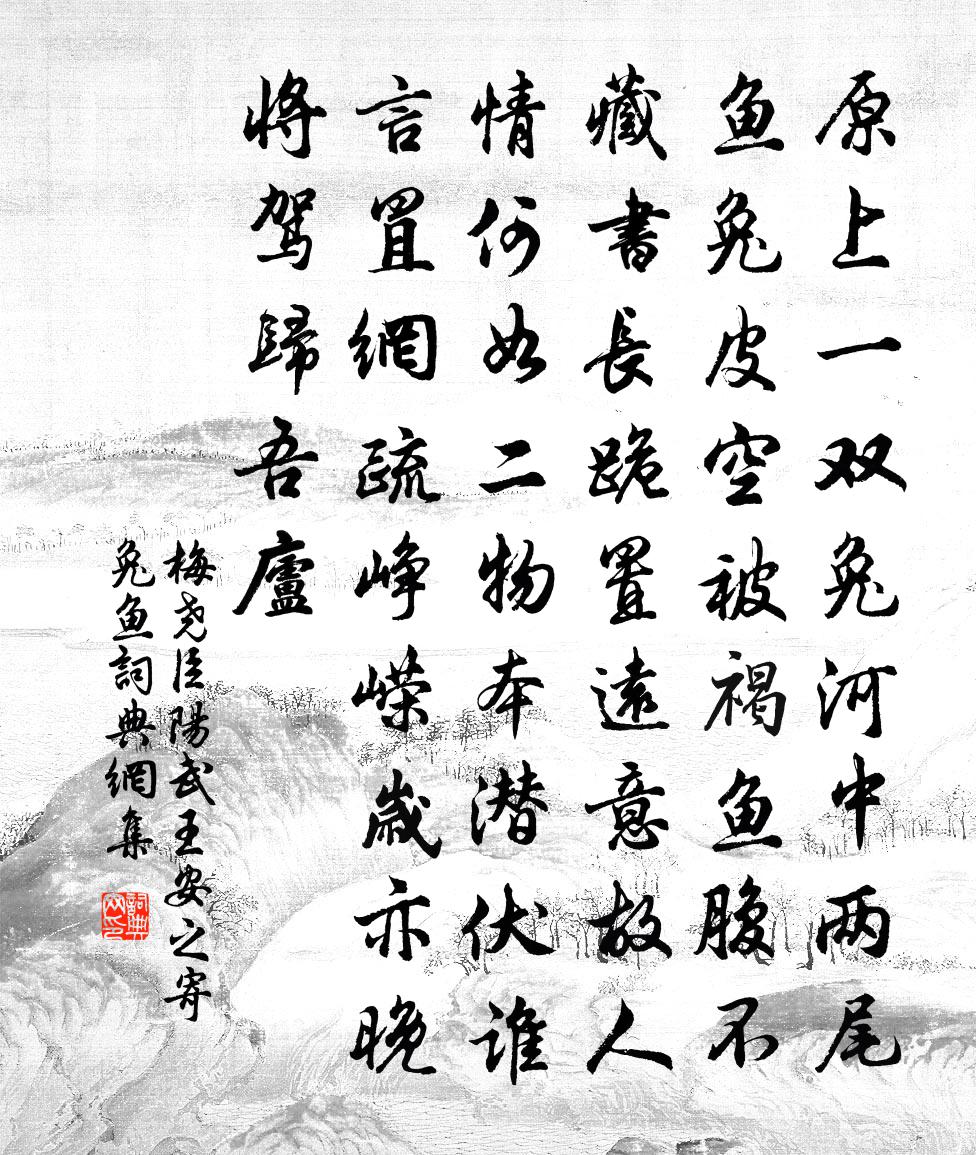 原上一双兔河中两尾
鱼兔皮空被褐鱼腹不
藏書長跪置遠意故人
情何如二物本潜伏谁
言罝網疏峥嵘歲亦晚
将驾歸吾廬
梅尧臣陽武王安之寄
兔鱼詞典網集
詞典网印